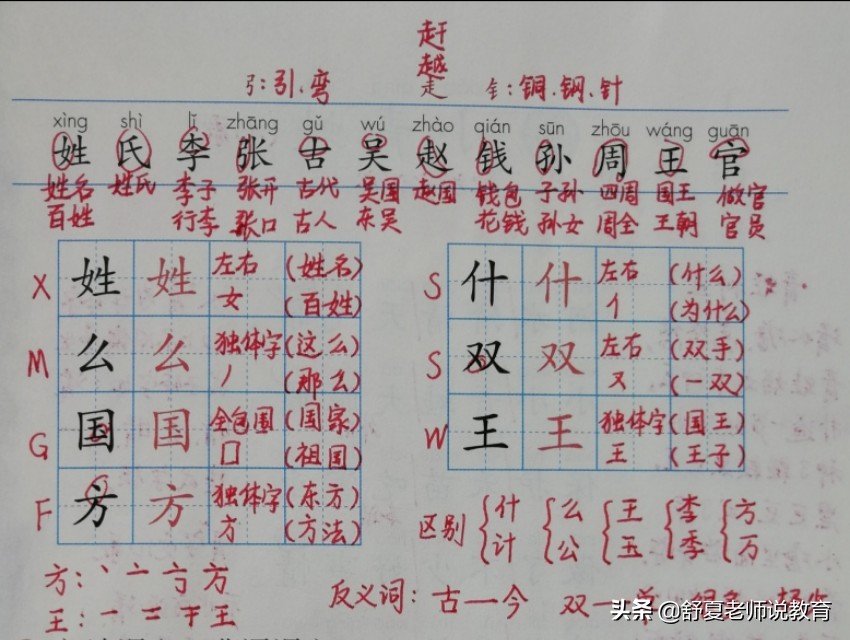 赶
越
弓:引、弯 走 钅:铜、钢、针
xìng shì lǐ zhāng gǔ wú zhào qián sūn zhōu wáng guān
姓 氏 李 张 古 吴 赵 钱 孙 周 王 官
姓名 姓氏 李子 张开 古代 吴国 赵国 钱包 子孙 四周 国王 做官
百姓 行李 张口 古人 东吴 花钱 孙女 周全 王朝 官员
X 姓 姓 左右 (姓名)
女 (百姓)
M 么 么 独体字 (这么)
丿 (那么)
G 国 国 全包围 (国家)
囗 (祖国)
F 方 方 独体字 (东方)
方 (方法)
S 什 什 左右 (什么)
亻 (为什么)
S 双 双 左右 (双手)
又 (一双)
W 王 王 独体字 (国王)
王 (王子)
区别 {什 {么 {王 {李 {方
计 公 玉 季 万
方:丶 亠 亐 方
王:一 二 干 王
反义词:古—今 双—单
头条 @舒夏老师说教育